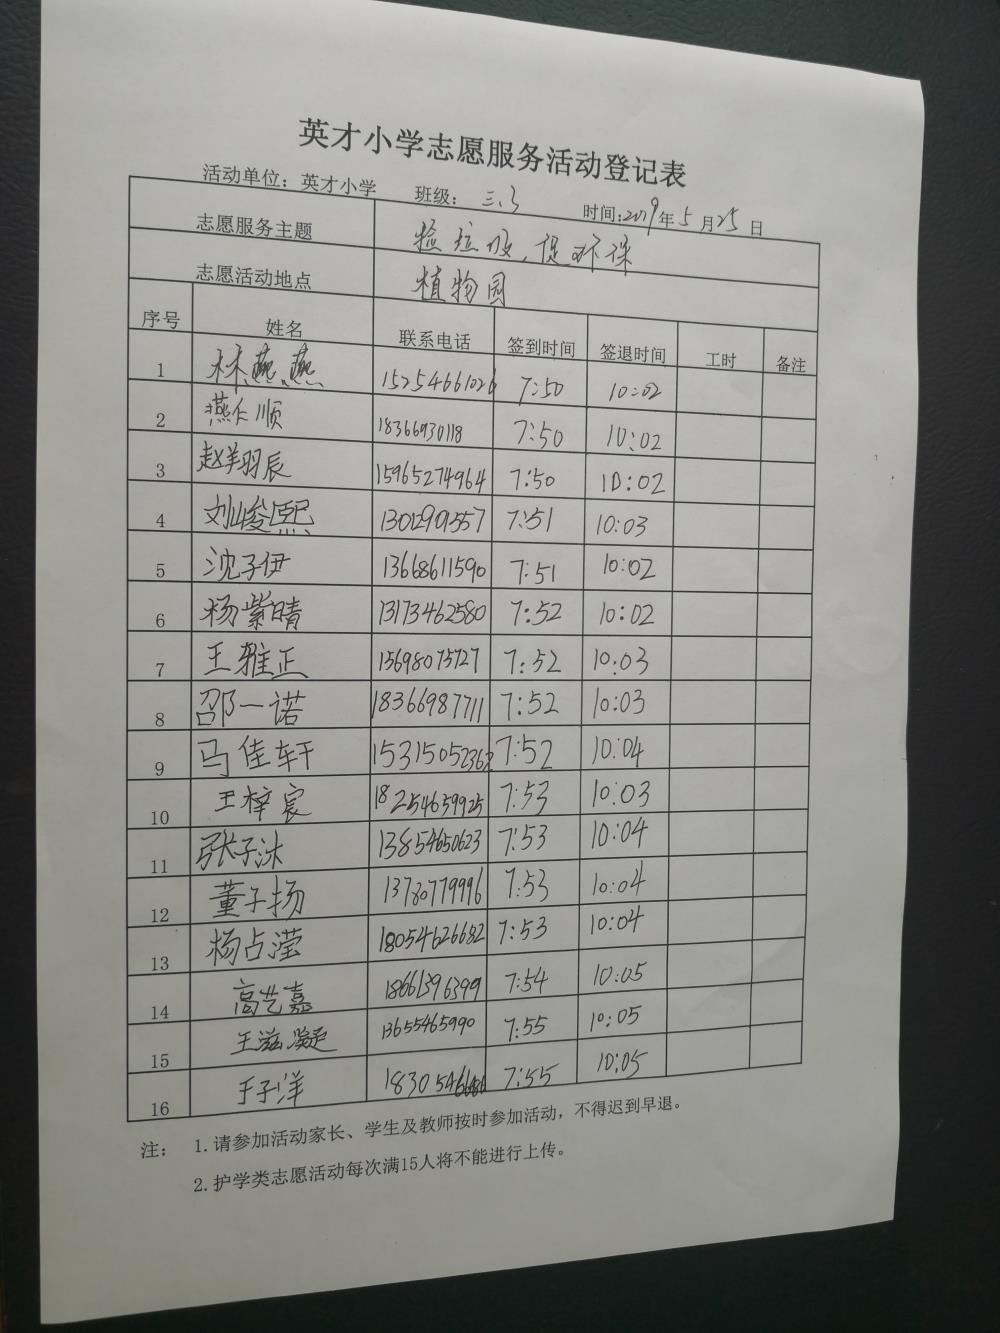 英才小学志愿服务活动登记表
活动单位：英才小学 班级：三.3 时间：2019年5月25日
志愿服务主题 捡垃圾，促环保
志愿活动地点 植物园
序号 姓名 联系电话 签到时间 签退时间 工时 备注
1 林燕燕 15254661026 7:50 10:02
2 燕仁顺 18366930118 7:50 10:02
3 赵翔羽辰 15965274964 7:50 10:02
4 刘峻熙 13012901557 7:51 10:03
5 沈子伊 13668611590 7:51 10:02
6 杨紫晴 13173462580 7:52 10:02
7 王雅正 15698075727 7:52 10:03
8 邵一诺 18366987711 7:52 10:03
9 马佳轩 15315052362 7:52 10:04
10 王梓宸 18254639925 7:53 10:03
11 张子沐 13854650623 7:53 10:04
12 董子扬 13780779996 7:53 10:04
13 杨占滢 18054626682 7:53 10:04
14 高艺嘉 18661396399 7:54 10:05
15 王滋凝 13655465990 7:55 10:05
16 于子洋 7:55 10:05
注： 1.请参加活动家长、学生及教师按时参加活动，不得迟到早退。
2.护学类志愿活动每次满15人将不能进行上传。